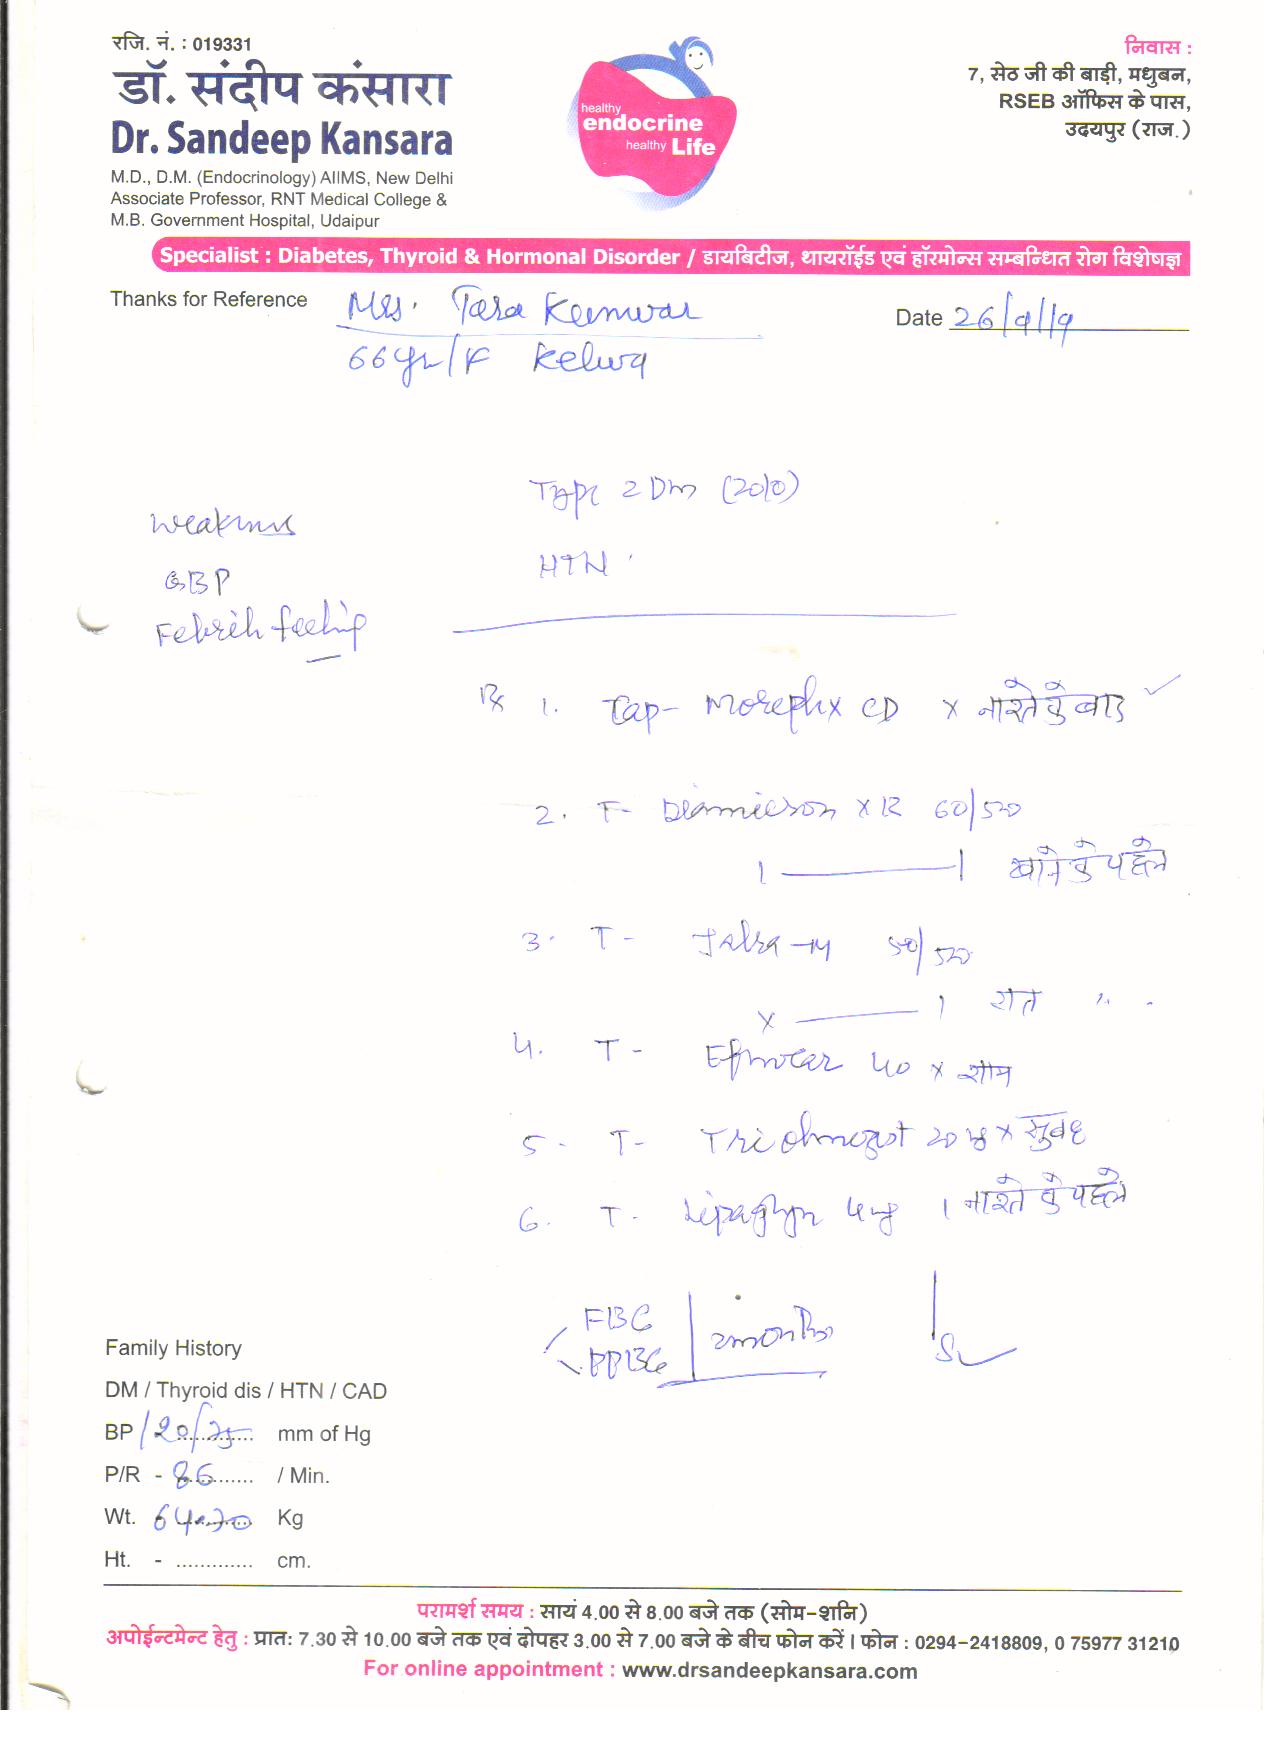 रजि. नं. : 019331
डॉ. संदीप कंसारा
Dr. Sandeep Kansara
M.D., D.M. (Endocrinology) AIIMS, New Delhi
Associate Professor, RNT Medical College &
M.B. Government Hospital, Udaipur
healthy
endocrine
healthy Life
निवास :
7, सेठ जी की बाड़ी, मधुबन,
RSEB ऑफिस के पास,
उदयपुर (राज.)
Specialist : Diabetes, Thyroid & Hormonal Disorder / डायबिटीज, थायरॉईड एवं हॉरमोन्स सम्बन्धित रोग विशेषज्ञ
Thanks for Reference Mrs. Tara Kunwar
Date 26/9/19
66yr/F Kelwa
Type 2 DM (2010)
Weakness
HTN
GBP
Febrile feeling
Rx 1. Tap- CD x नाश्ते के बाद
2. T- Diamicron XR 60/500
1 — 1 खाने के पहले
3. T- Jalra-M 50/500
x — 1 रात " "
4. T- 40 x शाम
5- T- Triolmezest 20 x सुबह
6. T- Lipaglyn 4mg 1 नाश्ते के पहले
FBG
PPBG
2months
Family History
DM / Thyroid dis / HTN / CAD
BP 120/75 mm of Hg
P/R - 86 / Min.
Wt. 64.70 Kg
Ht. - ............. cm.
परामर्श समय : सायं 4.00 से 8.00 बजे तक (सोम-शनि)
अपोईन्टमेन्ट हेतु : प्रात: 7.30 से 10.00 बजे तक एवं दोपहर 3.00 से 7.00 बजे के बीच फोन करें। फोन : 0294-2418809, 0 75977 31210
For online appointment : www.drsandeepkansara.com